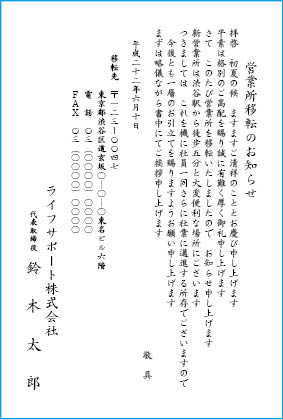 営業所移転のお知らせ
拝啓　初夏の候　ますますご清祥のこととお慶び申し上げます
平素は格別のご高配を賜り誠に有難く厚く御礼申し上げます
さて　このたび営業所を移転いたしましたので　お知らせ申し上げます
新営業所は渋谷駅から徒歩五分と大変便利な場所にございます
つきましては　これを機に社員一同さらに社業に邁進する所存でございますので
今後とも一層のお引立てを賜りますようお願い申し上げます
まずは略儀ながら書中にてご挨拶申し上げます
敬具
平成二十二年六月十日
移転先　〒一五〇-〇〇四七
東京都渋谷区道玄坂〇-〇-〇東名ビル六階
電話　〇三（〇〇〇〇）〇〇〇〇
ＦＡＸ　〇三（〇〇〇〇）〇〇〇〇
ライフサポート株式会社
代表取締役　鈴木太郎